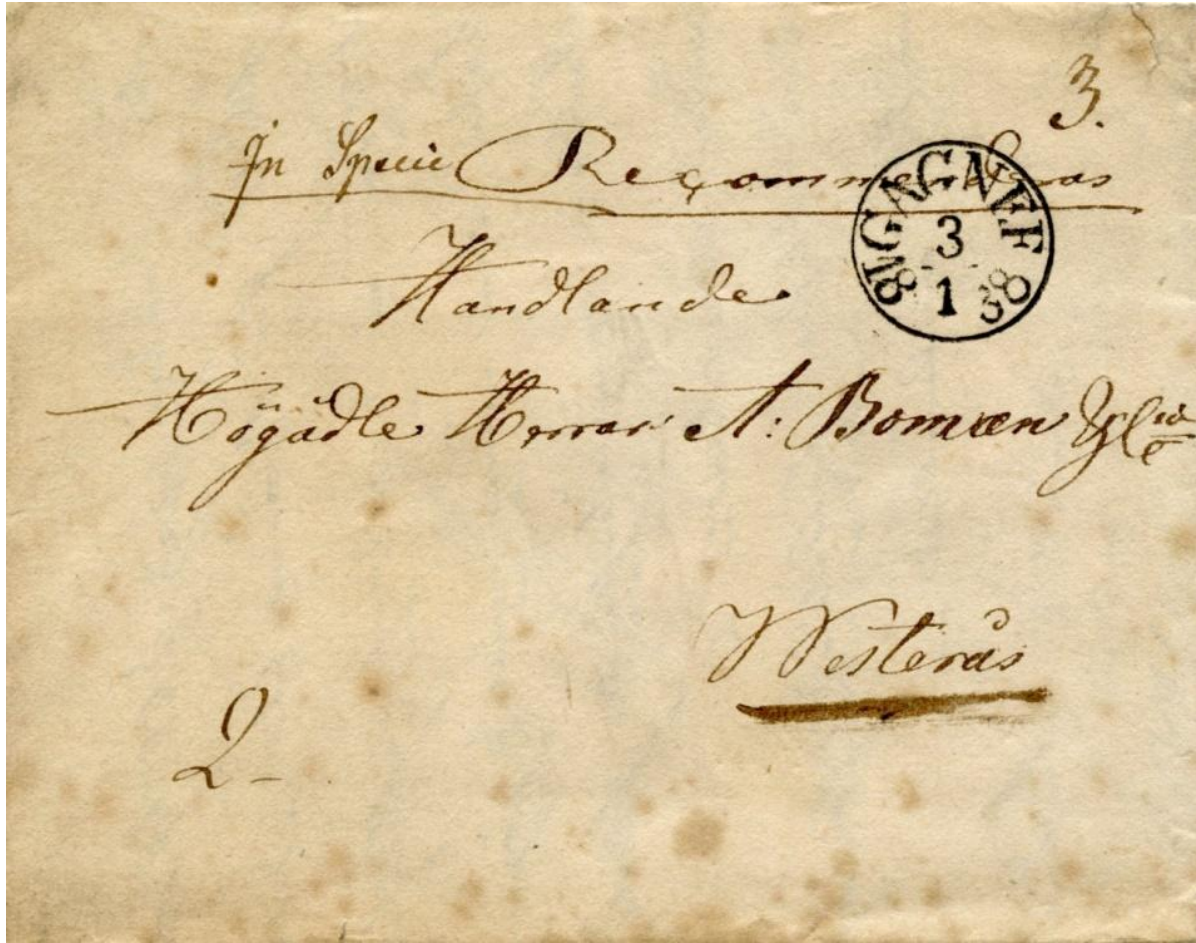 3.
In Specie Recommenderas
GAGNEF
3
1
1838
Handlande
Högädle Herrar A: Boman
Westerås
2-